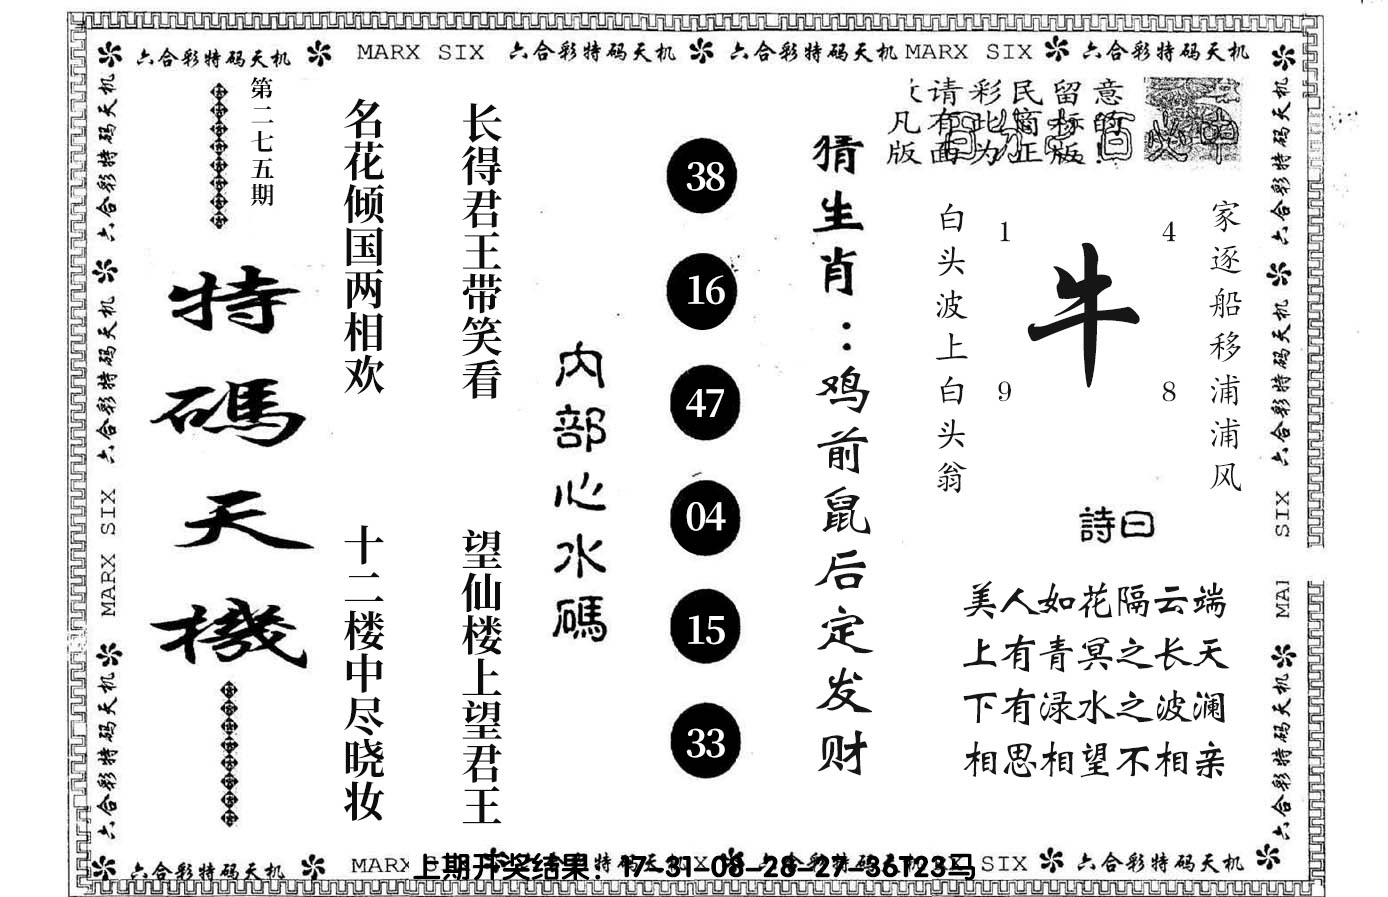 六合彩特码天机 MARX SIX 六合彩特码天机 六合彩特码天机 MARX SIX 六合彩特码天机
六合彩特码天机 六合彩特码天机 MARX SIX 六合彩特码天机
第二七五期
特碼天機
名花倾国两相欢
十二楼中尽晓妆
长得君王带笑看
望仙楼上望君王
内部心水碼
38
16
47
04
15
33
猜生肖：鸡前鼠后定发财
请彩民留意
凡有此的
版面为正版!
白头波上白头翁
1 4
牛
9 8
家逐船移浦浦风
詩曰
美人如花隔云端
上有青冥之长天
下有渌水之波澜
相思相望不相亲
六合彩特码天机 六合彩特码天机 SIX MA 六合彩特码天机
六合彩特码天机 MARX SIX 六合彩特码天机
上期开奖结果：17-31-08-28-27-36T23马